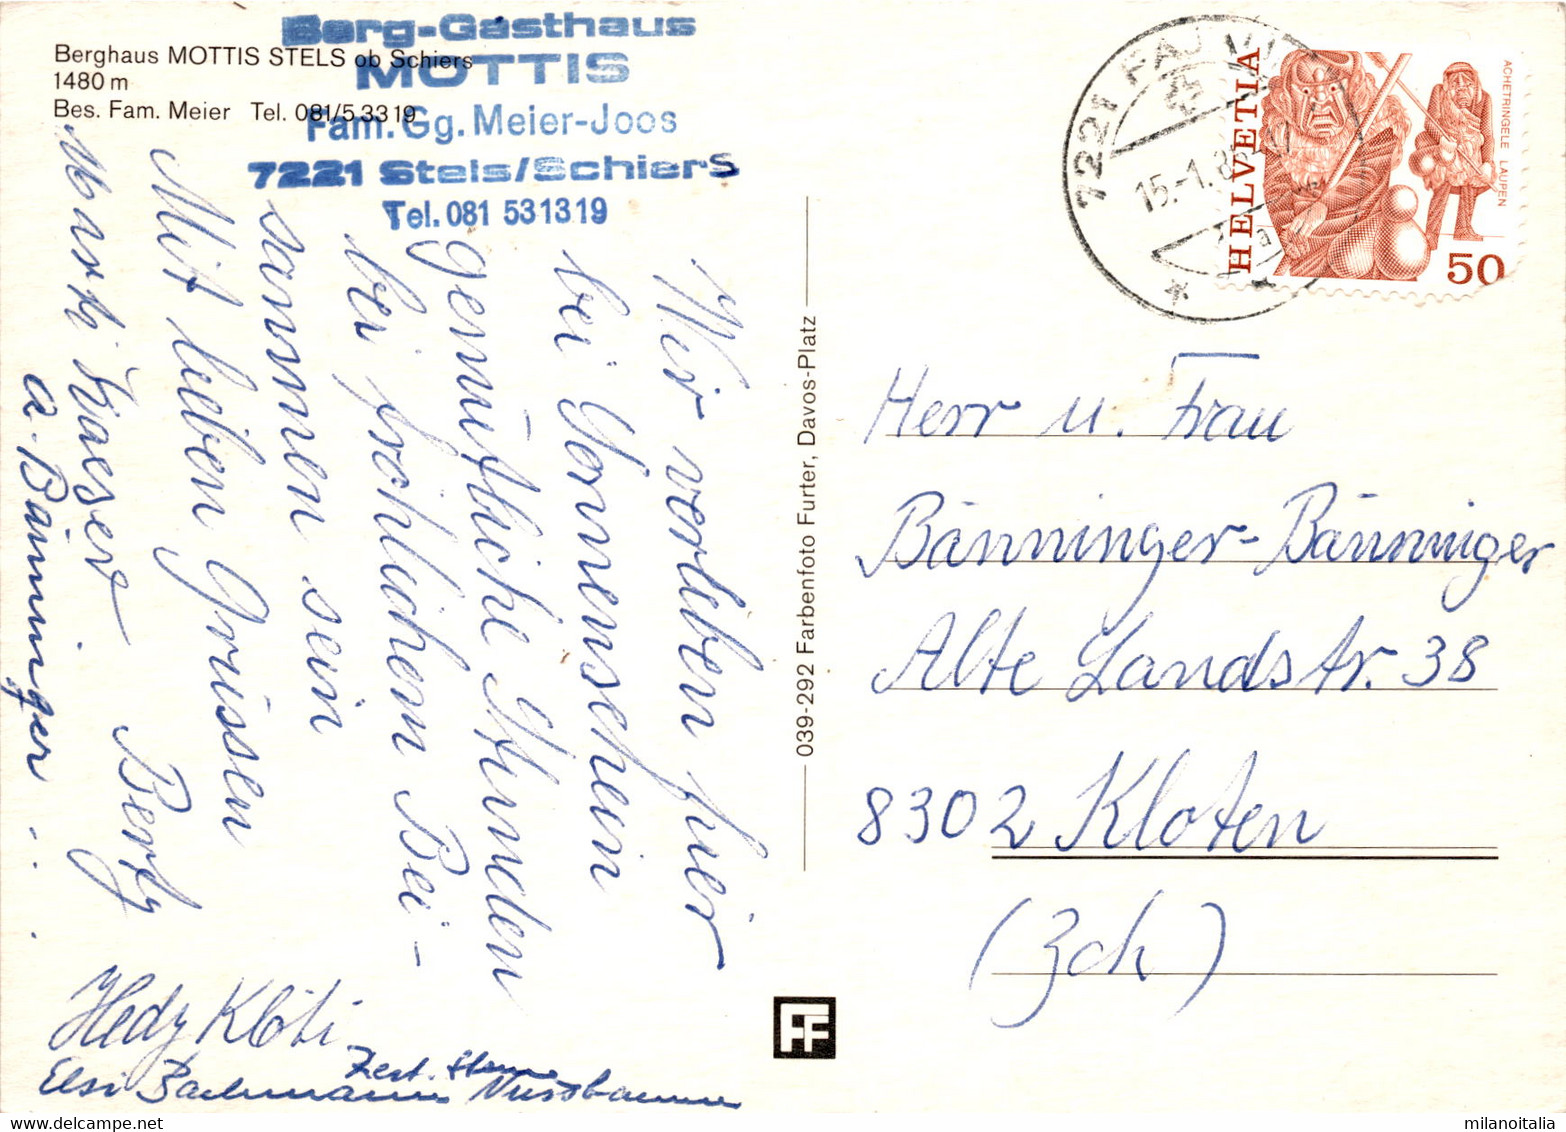 Berghaus MOTTIS STELS ob Schiers
1480 m
Bes. Fam. Meier Tel. 081/5 33 19
Berg-Gasthaus
MOTTIS
Fam. Gg. Meier-Joos
7221 Stels/Schiers
Tel. 081 531319
Wir verleben hier
bei Sonnenschein
gemütliche Stunden
bei fröhlichem Bei-
sammen sein
Mit lieben Grüssen
Marti Kaeser Berty
a. Bänninger
Hedy Klöti
Elsi Bachmann Nussbaumer
039-292 Farbenfoto Furter, Davos-Platz
FF
7221
15.-1.8
a
HELVETIA
ACHETRINGELE LAUPEN
50
Herr u. Frau
Bänninger-Bänninger
Alte Landstr. 38
8302 Kloten
(Zch)
milanoitalia